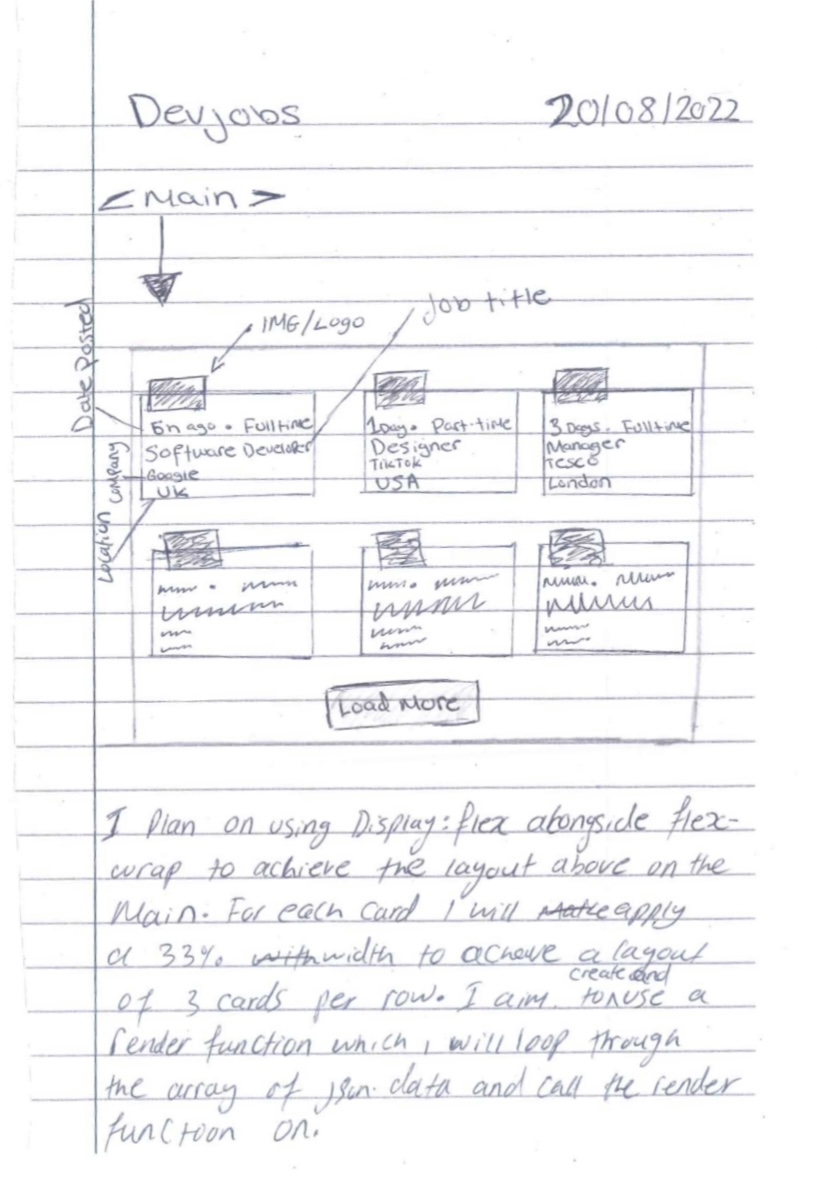 Devjobs 20/08/2022
<Main>
IMG/Logo
Job title
Date Posted
Company
Location
5h ago • Fulltime
Software Developer
Google
UK
1Day • Part-time
Designer
TikTok
USA
3 Days • Fulltime
Manager
Tesco
London
Load More
I Plan on using Display:flex alongside flex-
wrap to achieve the layout above on the
Main. For each Card I will Make apply
a 33% with width to acheve a layout
of 3 cards per row. I aim to create and use a
render function which i will loop through
the array of json data and call the render
function on.